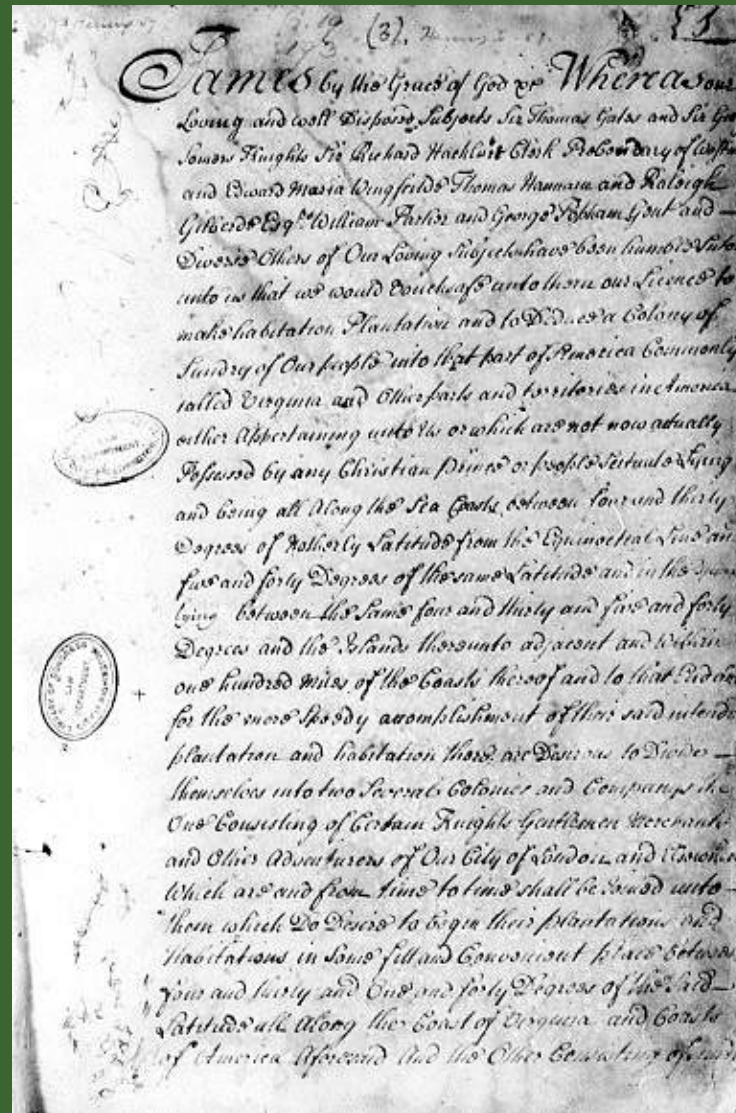 (3).
James by the Grace of God &c Whereas our
Loving and well Disposed Subjects Sir Thomas Gates and Sir Geo
Somers Knights Sir Richard Hackluit Clerk Prebendary of Westm
and Edward Maria Wingfeilde Thomas Hannam and Raleigh
Gilberde Esqrs. William Parker and George Popham Gent and
Diverse Others of Our Loving Subjects have been humble Suto
unto us that we would Vouchsafe unto them our Licence to
make habitation Plantation and to Deduce a Colony of
Sundry of Our people into that part of America Commonly
called Virginia and Other parts and territories in America
either Appertaining unto Us or which are not now actually
Possessed by any Christian Prince or people Scituate Lying
and being all Along the Sea Coasts between four and thirty
Degrees of Northerly Latitude from the Equinoctial Line and
five and forty Degrees of the same Latitude and in the
lying between the Same four and thirty and five and forty
Degrees and the Islands thereunto adjacent and within
one hundred miles of the Coasts thereof and to that End and
for the more Speedy accomplishment of their said intende
plantation and habitation there are Desirous to Divide
themselves into two Several Colonies and Companys the
One Consisting of Certain Knights Gentlemen Merchants
and Other Adventurers of Our City of London and Elsewhere
Which are and from time to time shall be Joined unto
them which Do Desire to begin their plantations and
Habitations in Some fitt and Convenient place between
four and thirty and One and forty Degrees of the Said
Latitude all Along the Coast of Virginia and Coasts
of America Aforesaid And the Other Consisting of